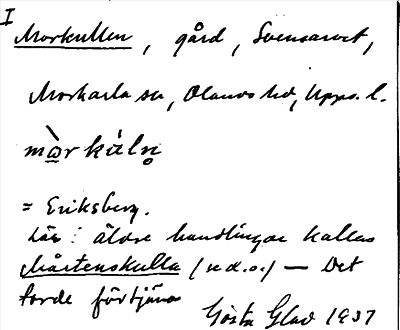 I
Morkullen, gård, Svensarvet,
Morkarla sn, Olands hd, Upps. l.
= Eriksberg.
Lär i äldre handlingar kallas
Mårtenskulla (u.d.o.) — Det
torde förtjäna
Gösta Glad 1937